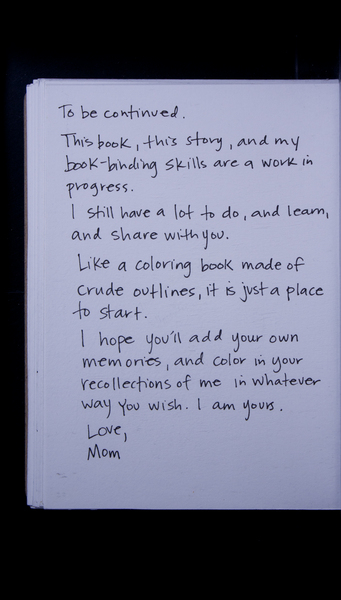 To be continued.
This book, this story, and my
book-binding skills are a work in
progress.
I still have a lot to do, and learn,
and share with you.
Like a coloring book made of
crude outlines, it is just a place
to start.
I hope you'll add your own
memories, and color in your
recollections of me in whatever
way you wish. I am yours.
Love,
Mom